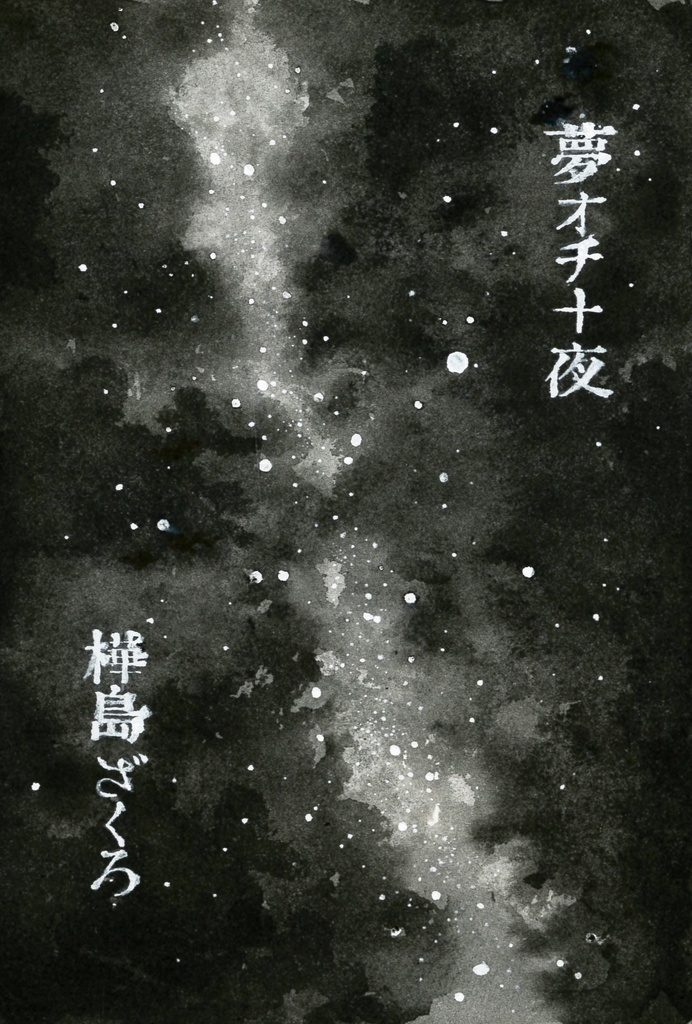 夢オチ十夜
樺島ざくろ